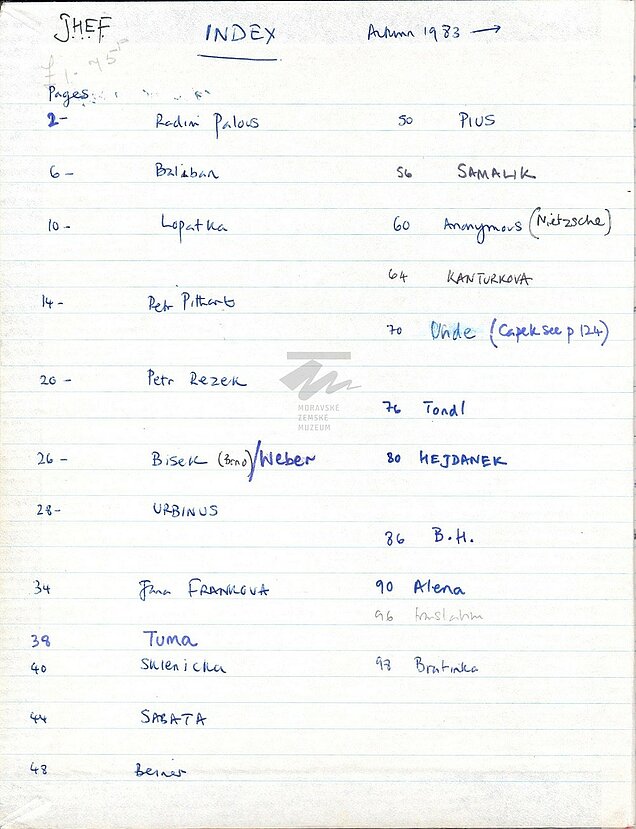 J.H.E.F
INDEX
Autumn 1983 →
£1.45
Pages
2- Radim Palous
6- Balaban
10- Lopatka
14- Petr Pithart
20- Petr Rezek
26- Bisek (Brno)/Weber
28- URBINUS
34 Jana FRANKOVA
38 Tuma
40 Sklenicka
44 SABATA
48 Berner
50 PIUS
56 SAMALIK
60 Anonymous (Nietzsche)
64 KANTURKOVA
70 Uhde (Capek see p 124)
MORAVSKÉ
ZEMSKÉ
MUZEUM
76 Tondl
80 HEJDANEK
86 B.H.
90 Alena
96 translation
98 Bratinka